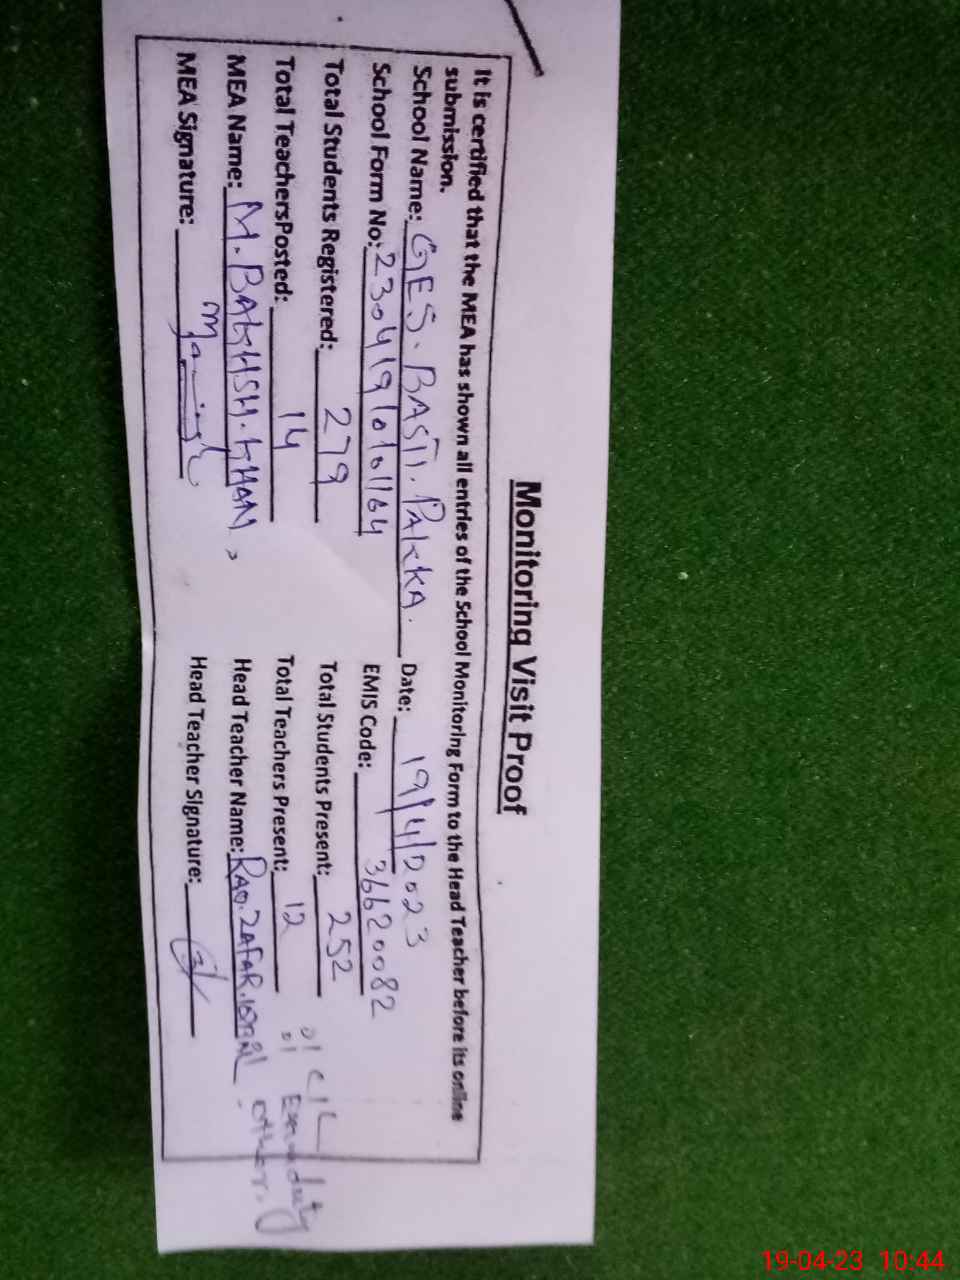 Monitoring Visit Proof
It is certified that the MEA has shown all entries of the School Monitoring Form to the Head Teacher before its online
submission.
School Name: GES. BASTI. PAKKA. Date: 19/4/2023
School Form No: 23041910101164 EMIS Code: 36620082
Total Students Registered: 279 Total Students Present: 252 01 C/L
Total TeachersPosted: 14 Total Teachers Present: 12 01 Exam duty
MEA Name: M. BAKHSH. KHAN, Head Teacher Name: RAO. ZAFAR. IQBAL. other.
MEA Signature: Head Teacher Signature:
19-04-23 10:44